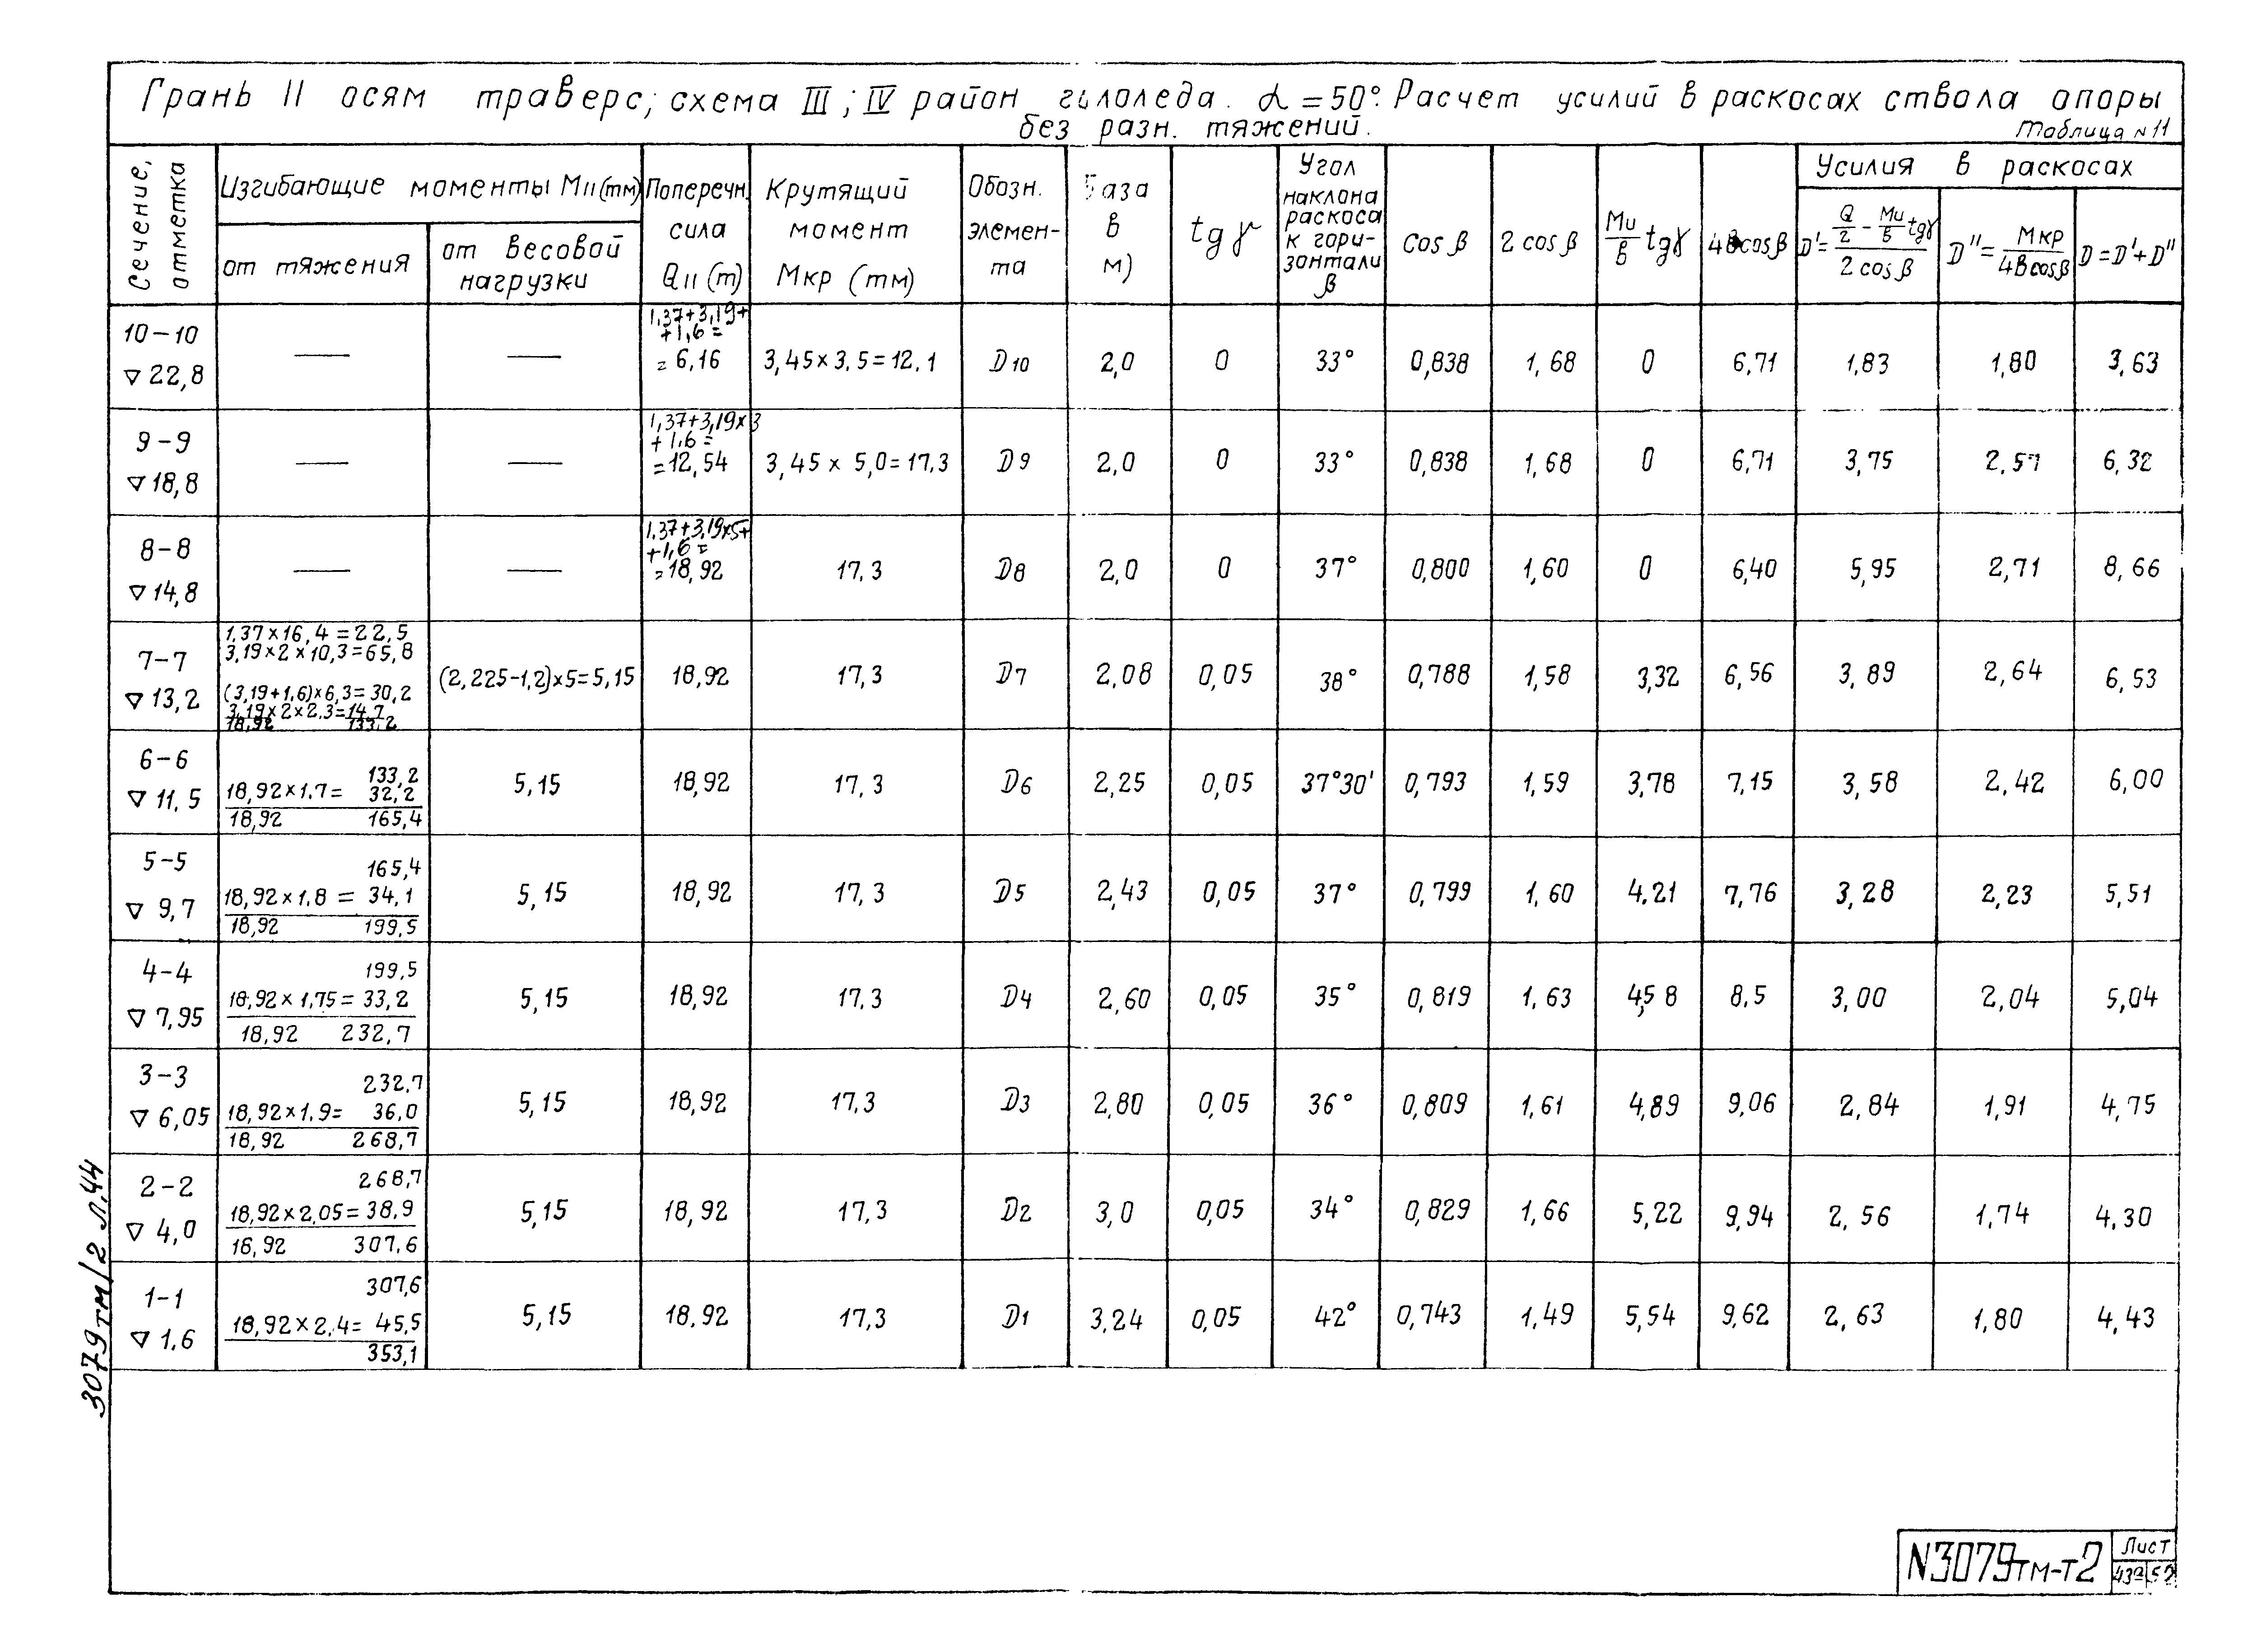 Грань II осям траверс; схема III; IV район гололеда. α = 50°. Расчет усилий в раскосах ствола опоры
без разн. тяжений.
Таблица N 11
Сечение, отметка
Изгибающие моменты MII (тм)
от тяжения
от весовой нагрузки
Поперечн. сила QII (т)
Крутящий момент Мкр (тм)
Обозн. элемен-та
База в м)
tg γ
Угол наклона раскоса к гори-зонтали β
cos β
2 cos β
Mи/в tgγ
4вcosβ
Усилия в раскосах
D' = (Q/2 - Mи/в tgγ) / 2 cos β
D'' = Мкр / 4вcosβ
D = D' + D''
10-10 ▽ 22,8 — — 1,37+3,19+ +1,6 = = 6,16 3,45 × 3,5 = 12,1 D10 2,0 0 33° 0,838 1,68 0 6,71 1,83 1,80 3,63
9-9 ▽ 18,8 — — 1,37+3,19×3 +1,6 = =12,54 3,45 × 5,0 = 17,3 D9 2,0 0 33° 0,838 1,68 0 6,71 3,75 2,57 6,32
8-8 ▽ 14,8 — — 1,37+3,19×5+ +1,6 = =18,92 17,3 D8 2,0 0 37° 0,800 1,60 0 6,40 5,95 2,71 8,66
7-7 ▽ 13,2
1,37×16,4 = 22,5
3,19×2×10,3=65,8
(3,19+1,6)×6,3=30,2
3,19×2×2,3=14,7
18,92 133,2
(2,225-1,2)×5=5,15 18,92 17,3 D7 2,08 0,05 38° 0,788 1,58 3,32 6,56 3,89 2,64 6,53
6-6 ▽ 11,5
133,2
18,92×1,7= 32,2
18,92 165,4
5,15 18,92 17,3 D6 2,25 0,05 37°30' 0,793 1,59 3,78 7,15 3,58 2,42 6,00
5-5 ▽ 9,7
165,4
18,92×1,8 = 34,1
18,92 199,5
5,15 18,92 17,3 D5 2,43 0,05 37° 0,799 1,60 4,21 7,76 3,28 2,23 5,51
4-4 ▽ 7,95
199,5
18,92×1,75= 33,2
18,92 232,7
5,15 18,92 17,3 D4 2,60 0,05 35° 0,819 1,63 4,58 8,5 3,00 2,04 5,04
3-3 ▽ 6,05
232,7
18,92×1,9= 36,0
18,92 268,7
5,15 18,92 17,3 D3 2,80 0,05 36° 0,809 1,61 4,89 9,06 2,84 1,91 4,75
2-2 ▽ 4,0
268,7
18,92×2,05=38,9
18,92 307,6
5,15 18,92 17,3 D2 3,0 0,05 34° 0,829 1,66 5,22 9,94 2,56 1,74 4,30
1-1 ▽ 1,6
307,6
18,92×2,4= 45,5
353,1
5,15 18,92 17,3 D1 3,24 0,05 42° 0,743 1,49 5,54 9,62 2,63 1,80 4,43
3079тм/2 л.44
N3079тм-т2
Лист
43а 52